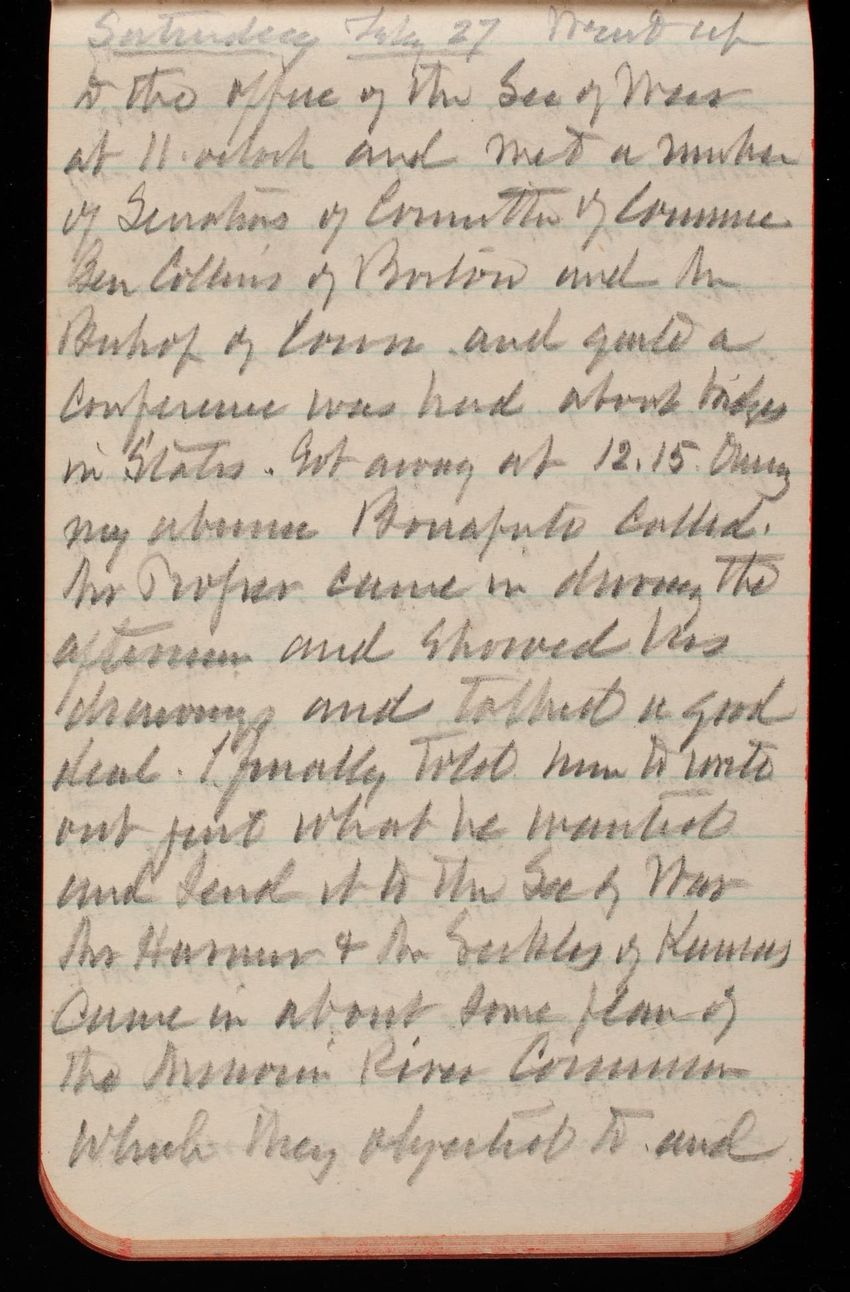 Saturday Feby 27 Went up
to the office of the Sec of War
at 11 oclock and met a number
of Senators of Committee of Commerce
Gen Collins of Boston and Mr
Bishop of Conn. and quite a
Conference was had about bridges
in States. Got away at 12.15. During
my absence Bonaparte Called.
Mr Proper came in during the
afternoon and showed his
drawings and talked a good
deal. I finally told him to write
out just what he wanted
and send it to the Sec of War
Mr & Mr of Kansas
Came in about some plan of
the Missouri River Commission
which they objected to and